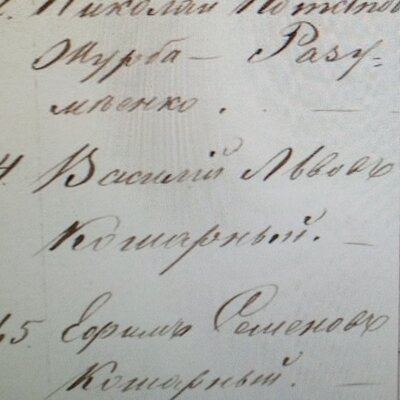 Николай Потапов
Журба — Разу-
мѣенко. —
4. Василій Львовъ
Кошарный. —
45. Ефимъ Семеновъ
Кошарный. —